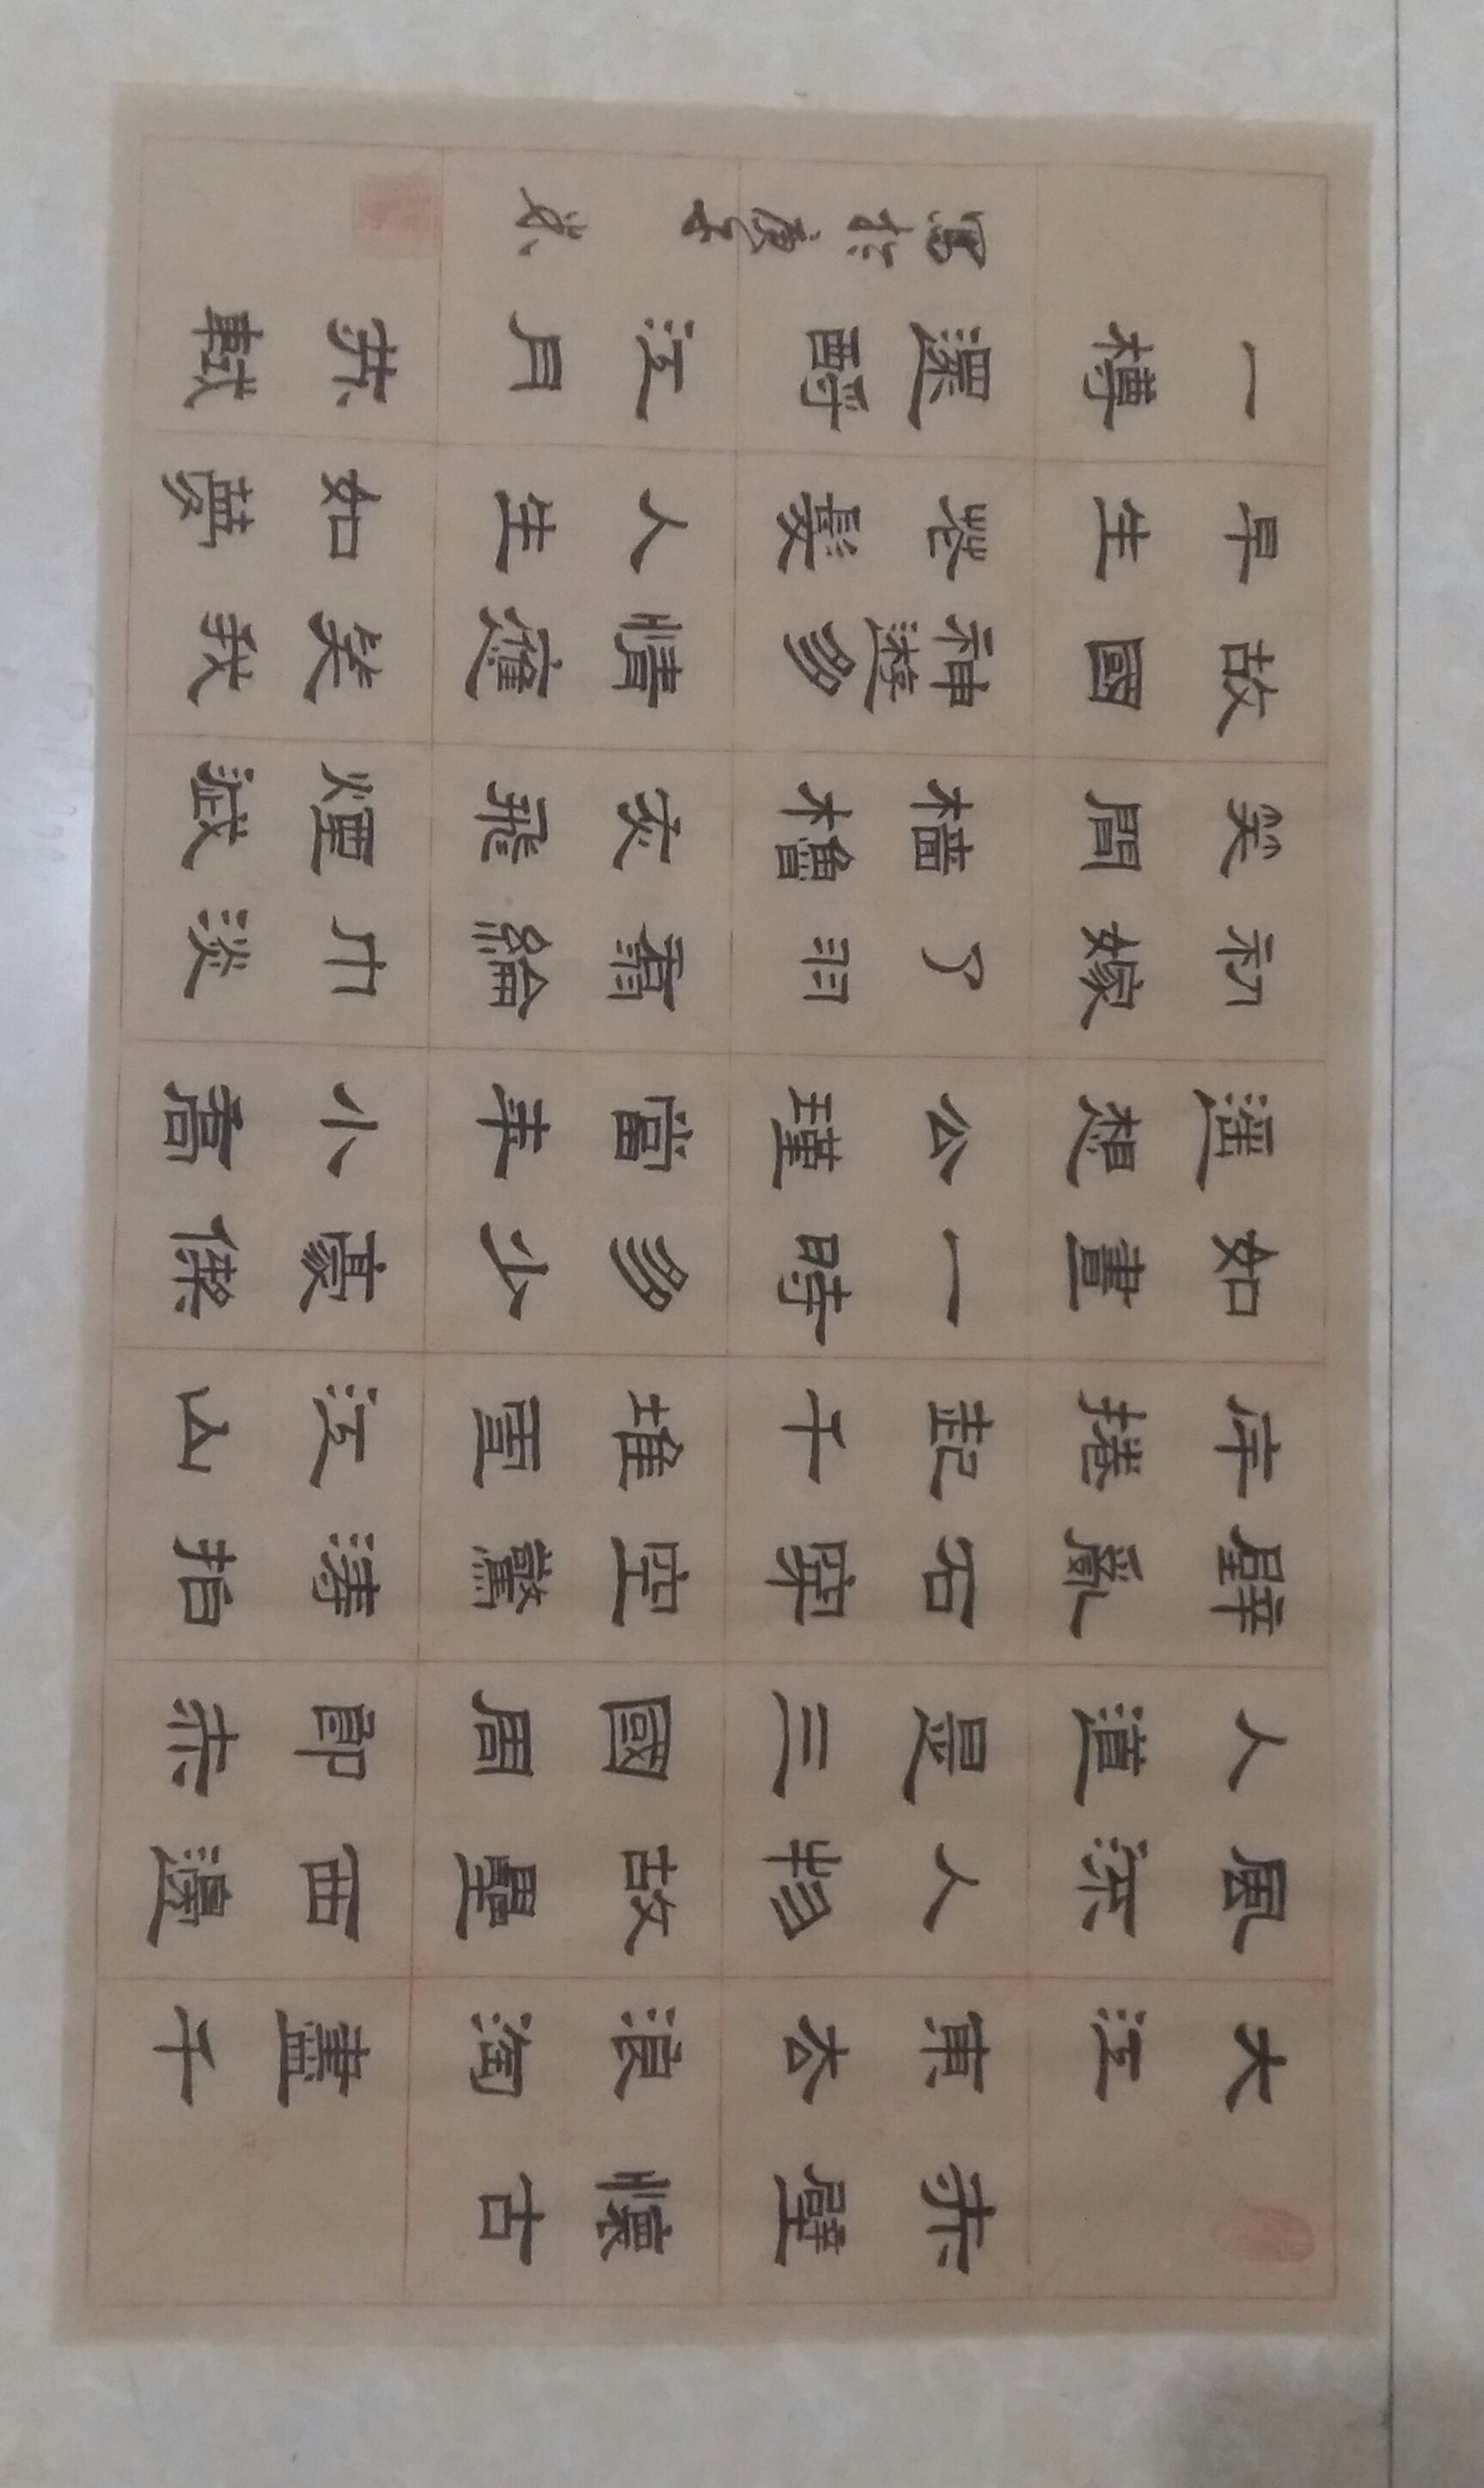 赤壁懷古
大江東去浪淘盡千
風流人物故壘西邊
人道是三國周郎赤
壁亂石穿空驚濤拍
岸捲起千堆雪江山
如畫一時多少豪傑
遙想公瑾當年小喬
初嫁了羽扇綸巾淡
笑間檣櫓灰飛煙滅
故國神遊多情應笑我
早生花髮人生如夢
一樽還酹江月 苏軾
寫於庚子